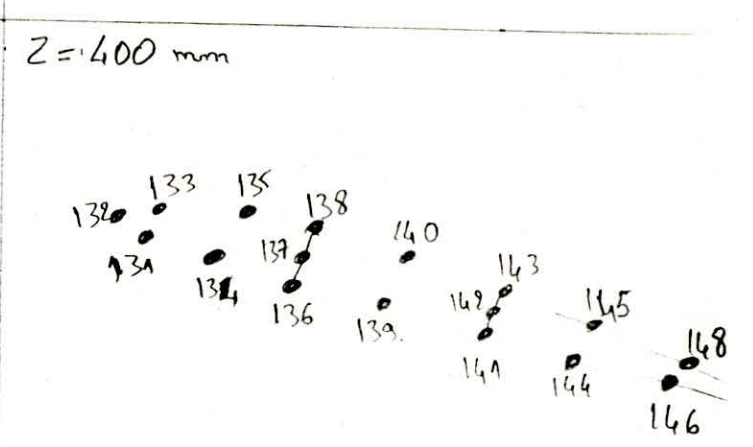 Z = 400 mm
132
133
135
138
131
134
137
136
140
139
143
142
141
145
144
148
146